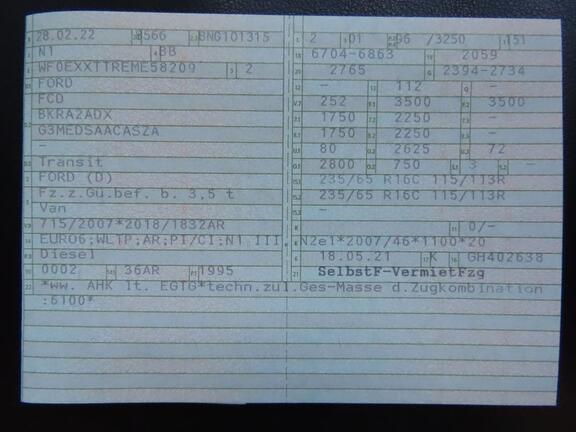 28.02.22 8566 BNG101315
N1 BB
WF0EXXTTREME58209 2
FORD
FCD
BKRA2ADX
G3MEDSAACASZA
-
Transit
FORD (D)
Fz.z.Gü.bef. b. 3,5 t
Van
715/2007*2018/1832AR
EURO6;WLTP;AR;PI/CI;N1 III
Diesel
0002 36AR 1995
2 01 96 /3250 151
6704-6863 2059
2765 2394-2734
- 112 -
252 3500 3500
1750 2250 -
1750 2250 -
80 2625 72
2800 750 3 -
235/65 R16C 115/113R
235/65 R16C 115/113R
-
- 0/-
N2e1*2007/46*1100*20
18.05.21 K GH402638
SelbstF-VermietFzg
*ww. AHK lt. EGTG*techn.zul.Ges-Masse d.Zugkombination
:6100*